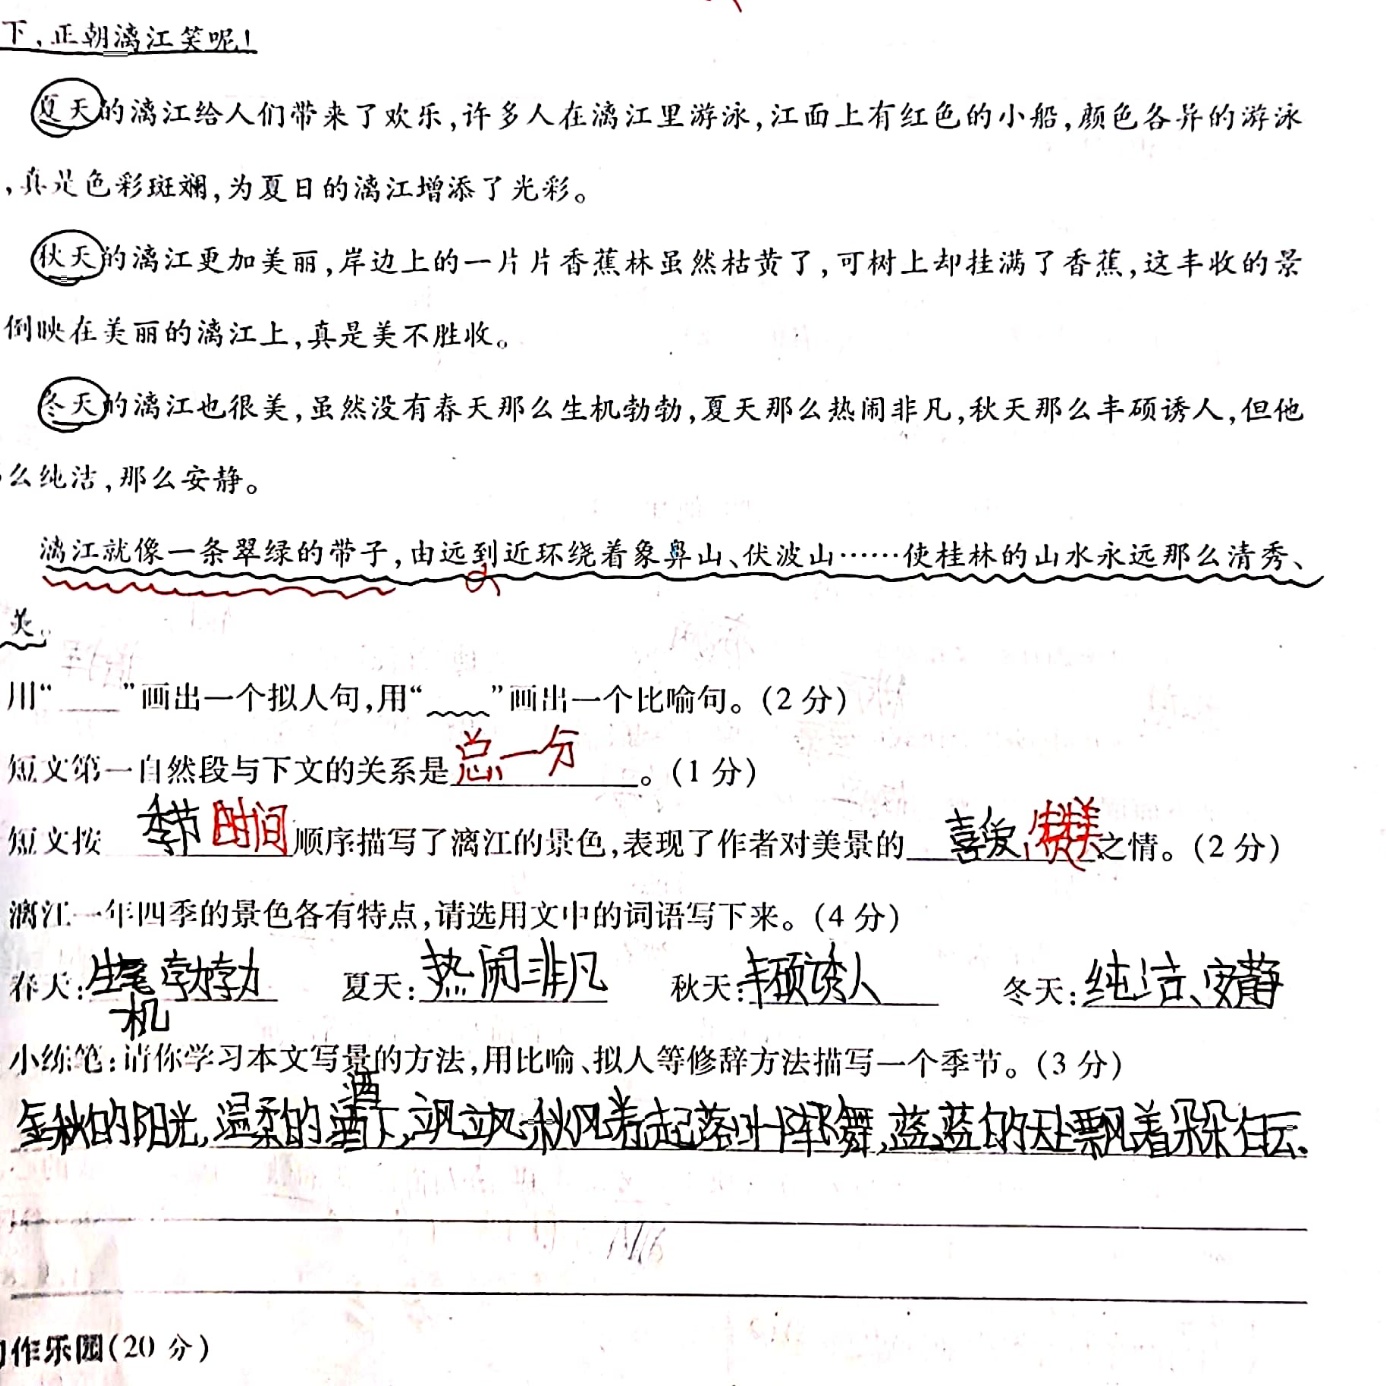 下,正朝漓江笑呢!
夏天的漓江给人们带来了欢乐,许多人在漓江里游泳,江面上有红色的小船,颜色各异的游泳
,真是色彩斑斓,为夏日的漓江增添了光彩。
秋天的漓江更加美丽,岸边上的一片片香蕉林虽然枯黄了,可树上却挂满了香蕉,这丰收的景
倒映在美丽的漓江上,真是美不胜收。
冬天的漓江也很美,虽然没有春天那么生机勃勃,夏天那么热闹非凡,秋天那么丰硕诱人,但他
么纯洁,那么安静。
漓江就像一条翠绿的带子,由远到近环绕着象鼻山、伏波山……使桂林的山水永远那么清秀、
美。
用“____”画出一个拟人句,用“____”画出一个比喻句。(2 分)
短文第一自然段与下文的关系是总—分。(1 分)
短文按 季节 时间 顺序描写了漓江的景色,表现了作者对美景的 喜爱、赞美 之情。(2 分)
漓江一年四季的景色各有特点,请选用文中的词语写下来。(4 分)
春天:生机勃勃 夏天:热闹非凡 秋天:丰硕诱人 冬天:纯洁、安静
小练笔:请你学习本文写景的方法,用比喻、拟人等修辞方法描写一个季节。(3 分)
金秋的阳光,温柔的洒下,飒飒秋风卷起落叶阵阵舞,蓝蓝的天上飘着朵朵白云、
作乐园(20 分)